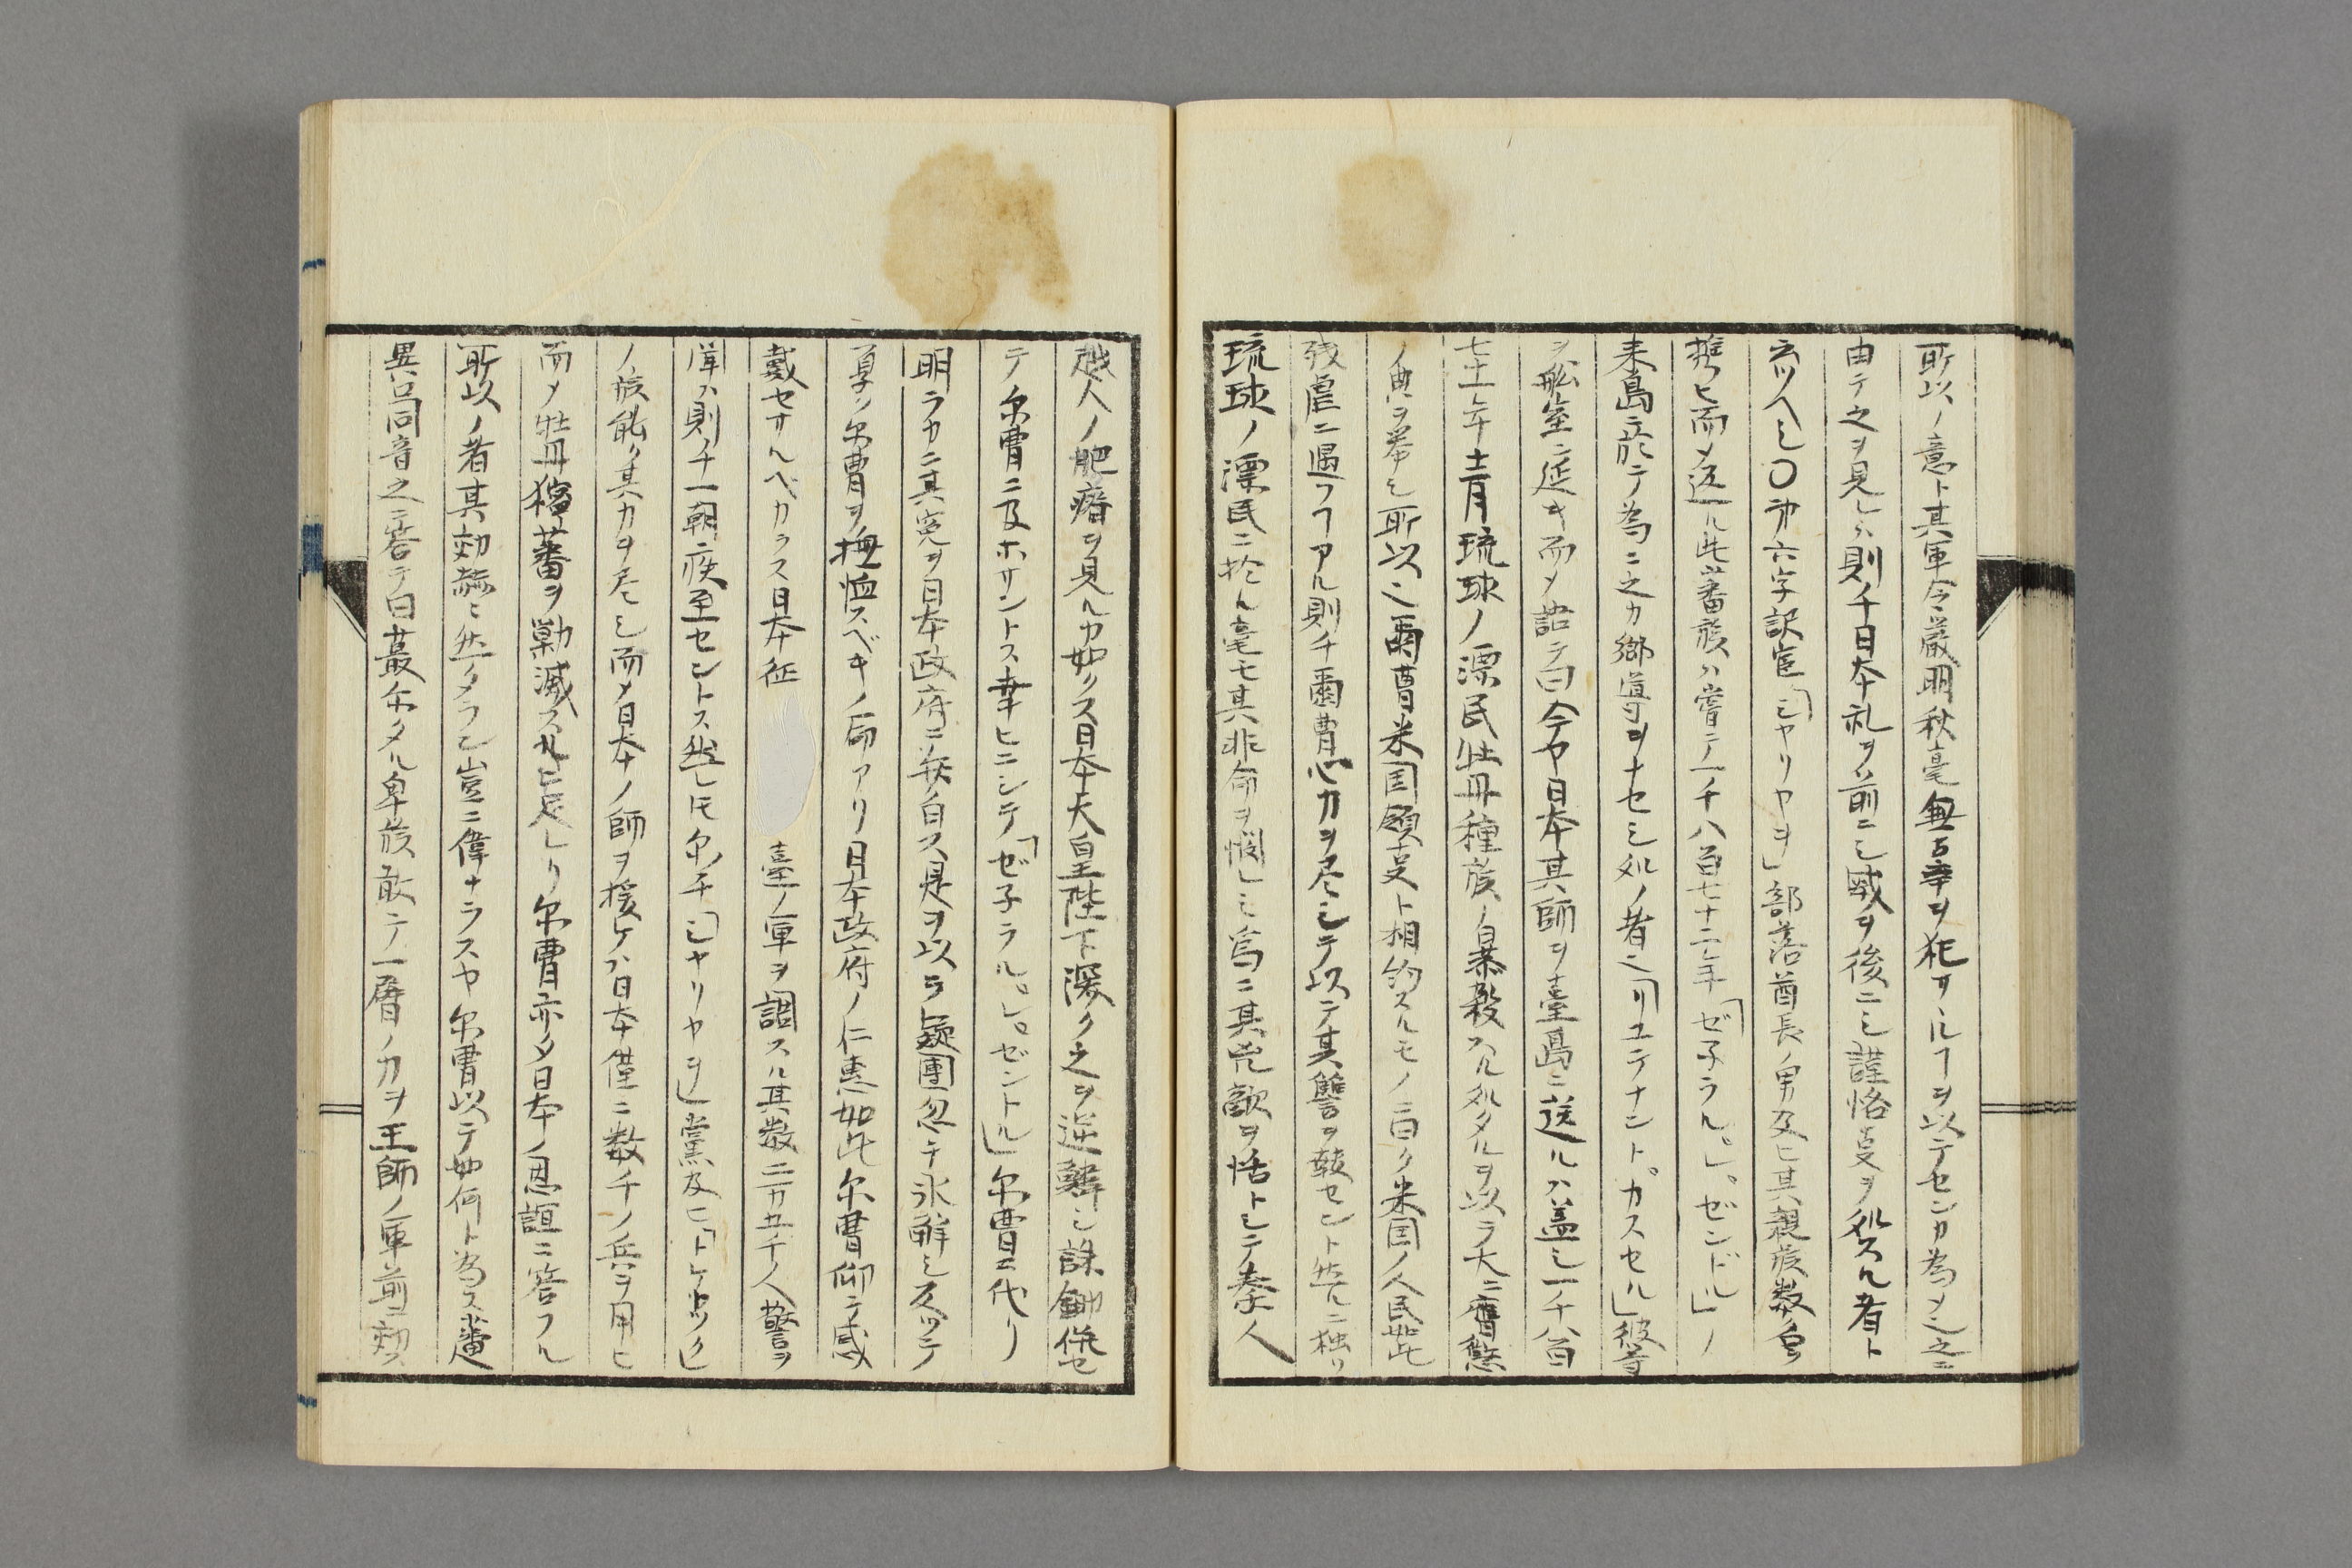 所以ノ意ト其軍令厳明秋毫無辜ヲ犯サルヿヲ以テセンカ為メ之ニ
由テ之ヲ見レハ則チ日本礼ヲ前ニシ威ヲ後ニシ謹恪事ヲ処スル者ト
云ツヘシ〇第六字訳官「シャリヤヲ」部落酋長ノ男及ヒ其親族数名ヲ
携ヒ而メ返ル此蕃族ハ嘗テ一千八百七十二年「ゼ子ラル。レ。ゼンドル」ノ
来島ニ於テ為ニ之カ郷導ヲナセシ処ノ者之「リユテナント。カスセル」彼等
ヲ舩室ニ延キ而メ語テ曰今ヤ日本其師ヲ臺島ニ送ルハ蓋シ一千八百
七十一年十二月琉球ノ漂民牡丹種族ノ暴殺スル処タルヲ以ラ大ニ膺懲
ノ典ヲ挙シ所以之爾曹米国領事ト相約スルモノニ曰ク米国ノ人民此
残虐ニ遇フヿアル則チ爾曹心力ヲ尽シテ以テ其讐ヲ報セント然ルニ独リ
琉球ノ漂民ニ於ル毫モ其非命ヲ憫レミ為ニ其兇敵ヲ恬トシテ秦人
越人ノ肥瘠ヲ見ルカ如クス日本天皇陛下深ク之ヲ逆鱗シ誅鋤併セ
テ尔曹ニ及ホサントス幸ヒニシテ「ゼ子ラル。レ。ゼントル」尔曹ニ代リ
明ラカニ其寃ヲ日本政府ニ奏白ス是ヲ以ラ疑團忽チ氷解シ反ツテ
厚ク尔曹ヲ撫恤スベキノ局アリ日本政府ノ仁恵如此尔曹仰テ感
戴セサルベカラス日本征 臺ノ軍ヲ調スル其数二万五千人警ヲ
伝ハ則チ一朝疾至セントス然レ𪜈尔チ「シャリヤヲ」黨及ヒ「トケトック」
ノ族能ク其力ヲ尽シ而メ日本ノ師ヲ援ケハ日本僅ニ数千ノ兵ヲ用ヒ
而メ牡丹獰蕃ヲ勦滅スルニ足レリ尔曹亦タ日本ノ恩誼ニ答フル
所以ノ者其効赫々然タラン豈ニ偉ナラスヤ尔曹以テ如何ト為ス蕃
異口同音之ニ答テ曰蕞尓タル卑族敢テ一層ノ力ヲ王師ノ軍前ニ効ス